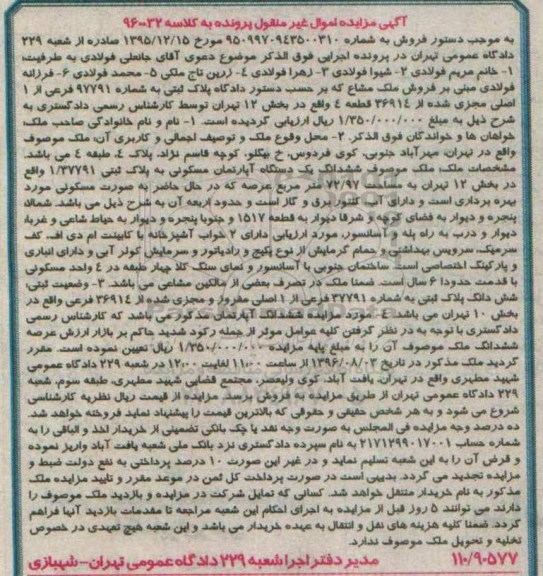 آگهی مزایده اموال غیر منقول پرونده به کلاسه ۹۶۰۰۳۲
به موجب دستور فروش به شماره ۹۵۰۹۹۷۰۹۴۳۵۰۰۳۱۰ مورخ ۱۳۹۵/۱۲/۱۵ صادره از شعبه ۲۲۹
دادگاه عمومی تهران در پرونده اجرایی فوق الذکر موضوع دعوی آقای جانعلی فولادی به طرفیت:
۱- خانم مریم فولادی ۲- شیوا فولادی ۳- زهرا فولادی ۴- زرین تاج ملکی ۵- محمد فولادی ۶- فرزانه
فولادی مبنی بر فروش ملک مشاع که بر حسب دستور دادگاه پلاک ثبتی به شماره ۹۷۷۹۱ فرعی از ۱
اصلی مجزی شده از ۳۶۹۱۴ قطعه ۴ واقع در بخش ۱۲ تهران توسط کارشناس رسمی دادگستری به
شرح ذیل به مبلغ ۱/۳۵۰/۰۰۰/۰۰۰ ریال ارزیابی گردیده است. ۱- نام و نام خانوادگی صاحب ملک:
خواهان ها و خواندگان فوق الذکر. ۲- محل وقوع ملک و توصیف اجمالی و کاربری آن: ملک موصوف
واقع در تهران، مهرآباد جنوبی، کوی فردوس، خ بیگلو، کوچه قاسم نژاد، پلاک ۴، طبقه ۴ می باشد.
مشخصات ملک: ملک موصوف ششدانگ یک دستگاه آپارتمان مسکونی به پلاک ثبتی ۱/۳۷۷۹۱ واقع
در بخش ۱۲ تهران به مساحت ۷۲/۹۷ متر مربع عرصه که در حال حاضر به صورت مسکونی مورد
بهره برداری است و دارای آب، کنتور برق و گاز است و حدود اربعه آن به شرح ذیل می باشد. شمالا:
پنجره و دیوار به فضای کوچه و شرقا دیوار به قطعه ۱۵۱۷ و جنوبا پنجره و دیوار به حیاط شاعی و غربا،
دیوار و درب به راه پله و آسانسور، مورد ارزیابی دارای ۲ خواب آشپزخانه با کابینت ام دی اف، کف
سرامیک، سرویس بهداشتی و حمام گرمایش از نوع پکیج و رادیاتور و سرمایش کولر آبی و دارای انباری
و پارکینگ اختصاصی است. ساختمان جنوبی با آسانسور و نمای سنگ کلا چهار طبقه در ۴ واحد مسکونی
با قدمت حدودا ۶ سال است. ضمنا ملک در تصرف بعضی از مالکین مشاعی می باشد. ۳- وضعیت ثبتی:
شش دانگ پلاک ثبتی به شماره ۳۷۷۹۱ فرعی از ۱ اصلی مفروز و مجزی شده از ۳۶۹۱۴ فرعی واقع در
بخش ۱۰ تهران می باشد. ۴- مورد مزایده ششدانگ آپارتمان مذکور می باشد که کارشناس رسمی
دادگستری با توجه به در نظر گرفتن کلیه عوامل موثر از جمله رکود شدید حاکم بر بازار ارزش عرصه
ششدانگ ملک موصوف آن را به مبلغ پایه مزایده ۱/۳۵۰/۰۰۰/۰۰۰ ریال تعیین نموده است. مقرر
گردید ملک مذکور در تاریخ ۱۳۹۶/۰۸/۰۳ از ساعت ۱۱:۰۰ لغایت ۱۲:۰۰ در شعبه ۲۲۹ دادگاه عمومی
شهید مطهری واقع در تهران، یافت آباد، کوی ولیعصر، مجتمع قضایی شهید مطهری، طبقه سوم، شعبه
۲۲۹ دادگاه عمومی تهران از طریق مزایده به فروش برسد. مزایده از قیمت ریال نظریه کارشناسی
شروع می شود و به هر شخص حقیقی و حقوقی که بالاترین قیمت را پیشنهاد نماید فروخته خواهد شد.
ده درصد وجه مزایده فی المجلس به صورت وجه نقد یا چک بانکی تضمینی از خریدار اخذ و الباقی را به
شماره حساب ۲۱۷۱۲۹۹۰۱۷۰۰۱ به نام سپرده دادگستری نزد بانک ملی شعبه یافت آباد واریز نموده
و قرض آن را به این شعبه تسلیم نماید و در غیر این صورت ۱۰ درصد پرداختی به نفع دولت ضبط و
مزایده تجدید می گردد. بدیهی است در صورت پرداخت کل ثمن در موعد مقرر و تایید مزایده ملک
مذکور به نام خریدار منتقل خواهد شد. کسانی که تمایل شرکت در مزایده و بازدید ملک موصوف را
دارند می توانند ۵ روز قبل از مزایده به اجرای احکام این شعبه مراجعه تا مقدمات بازدید آنها فراهم
گردد. ضمنا کلیه هزینه های نقل و انتقال به عهده خریدار می باشد و این شعبه هیچ تعهدی در خصوص
تخلیه و تحویل ملک موصوف ندارد.
۱۱۰/۹۰۵۷۷ مدیر دفتر اجرا شعبه ۲۲۹ دادگاه عمومی تهران - شهبازی